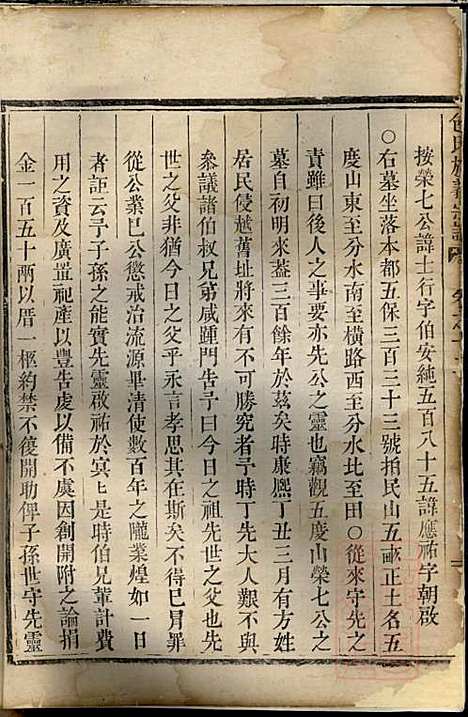 按榮七公諱士行字伯安純五百八十五諱應祐字朝啟
〇右墓坐落本都五保三百三十三號拍民山五畝正土名五
度山東至分水南至橫路西至分水比至田〇從來守先之
責雖曰後人之事要亦先公之靈也竊觀五度山榮七公之
墓自初明來蓋三百餘年於兹矣時康熈丁丑三月有方姓
居民侵越舊址將來有不可勝究者予時丁先大人艱不與
叅議諸伯叔兄弟咸踵門告予曰今日之祖先世之父也先
世之父非猶今日之父乎永言孝思其在斯矣不得已冐罪
從公業已公懲戒治流源畢清使數百年之隴業煌如一日
者詎云予子孫之能實先靈啟祐於冥冥也是時伯兄輩計費
用之資及廣置祀產以豐告處以備不虞因創開附之論捐
金一百五十兩以厝一柩約禁不復開助俾子孫世守先靈